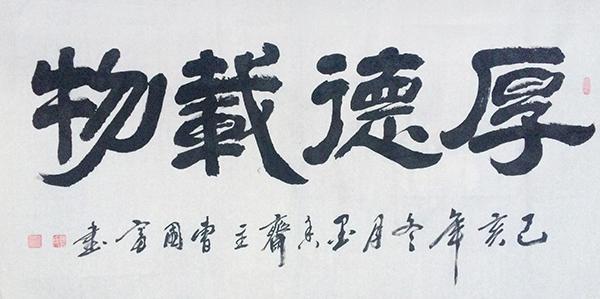 厚德載物
己亥年冬月墨香齋主曹國富書